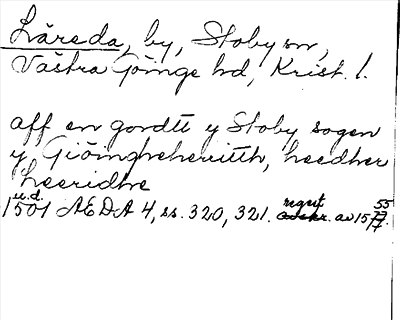 Lärsda, by, Stoby sn,
Västra Göinge hd, Krist. l.
aff en gordtt y Stoby sogen
y Giömgheheritth, heedher
Leeridhe
u.d.
1501 AEDA 4, ss. 320, 321. regist av 1555